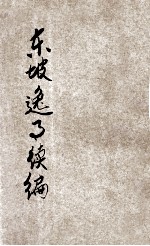 东坡逸事续编